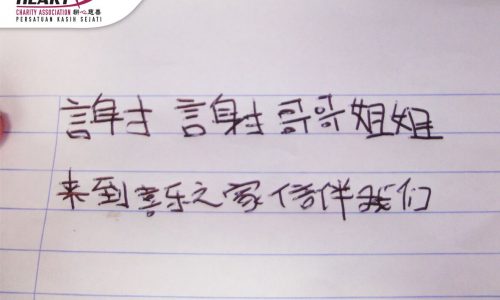 HEART
CHARITY ASSOCIATION 耕心慈善
PERSATUAN KASIH SEJATI
謝 謝 哥哥姐姐
来到喜乐之家倍伴我们